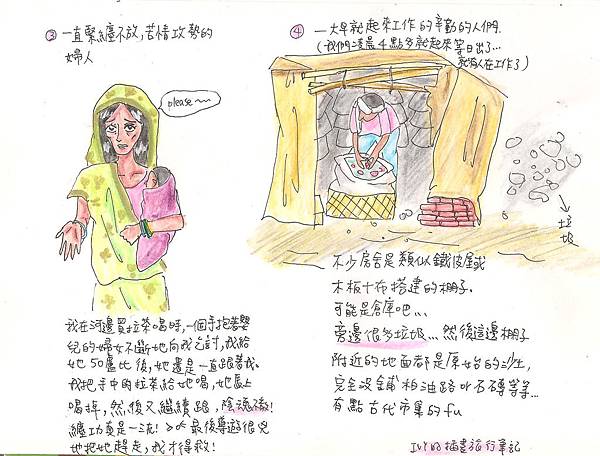 ③ 一直緊纏不放,苦情攻勢的
婦人
please~~
我在河邊買拉茶喝時,一個手抱著嬰
兒的婦女不斷地向我乞討,我給
她50盧比後,她還是一直跟著我。
我把手中的拉茶給她喝,她馬上
喝掉,然後又繼續跟,陰魂不散!
纏功真是一流! 最後導遊很兇
地把她趕走,我才得救!
④ 一大早就起來工作的辛勤的人們.
(我們凌晨4點多就起來等日出了...
就有人在工作了)
→垃圾
不少房舍是類似鐵皮屋或
木板+布搭建的棚子.
可能是倉庫吧...
旁邊很多垃圾...然後這邊棚子
附近的地面都是原始的沙土,
完全沒鋪柏油路or石磚等等...
有點古代市集的fu
IVY的插畫旅行筆記